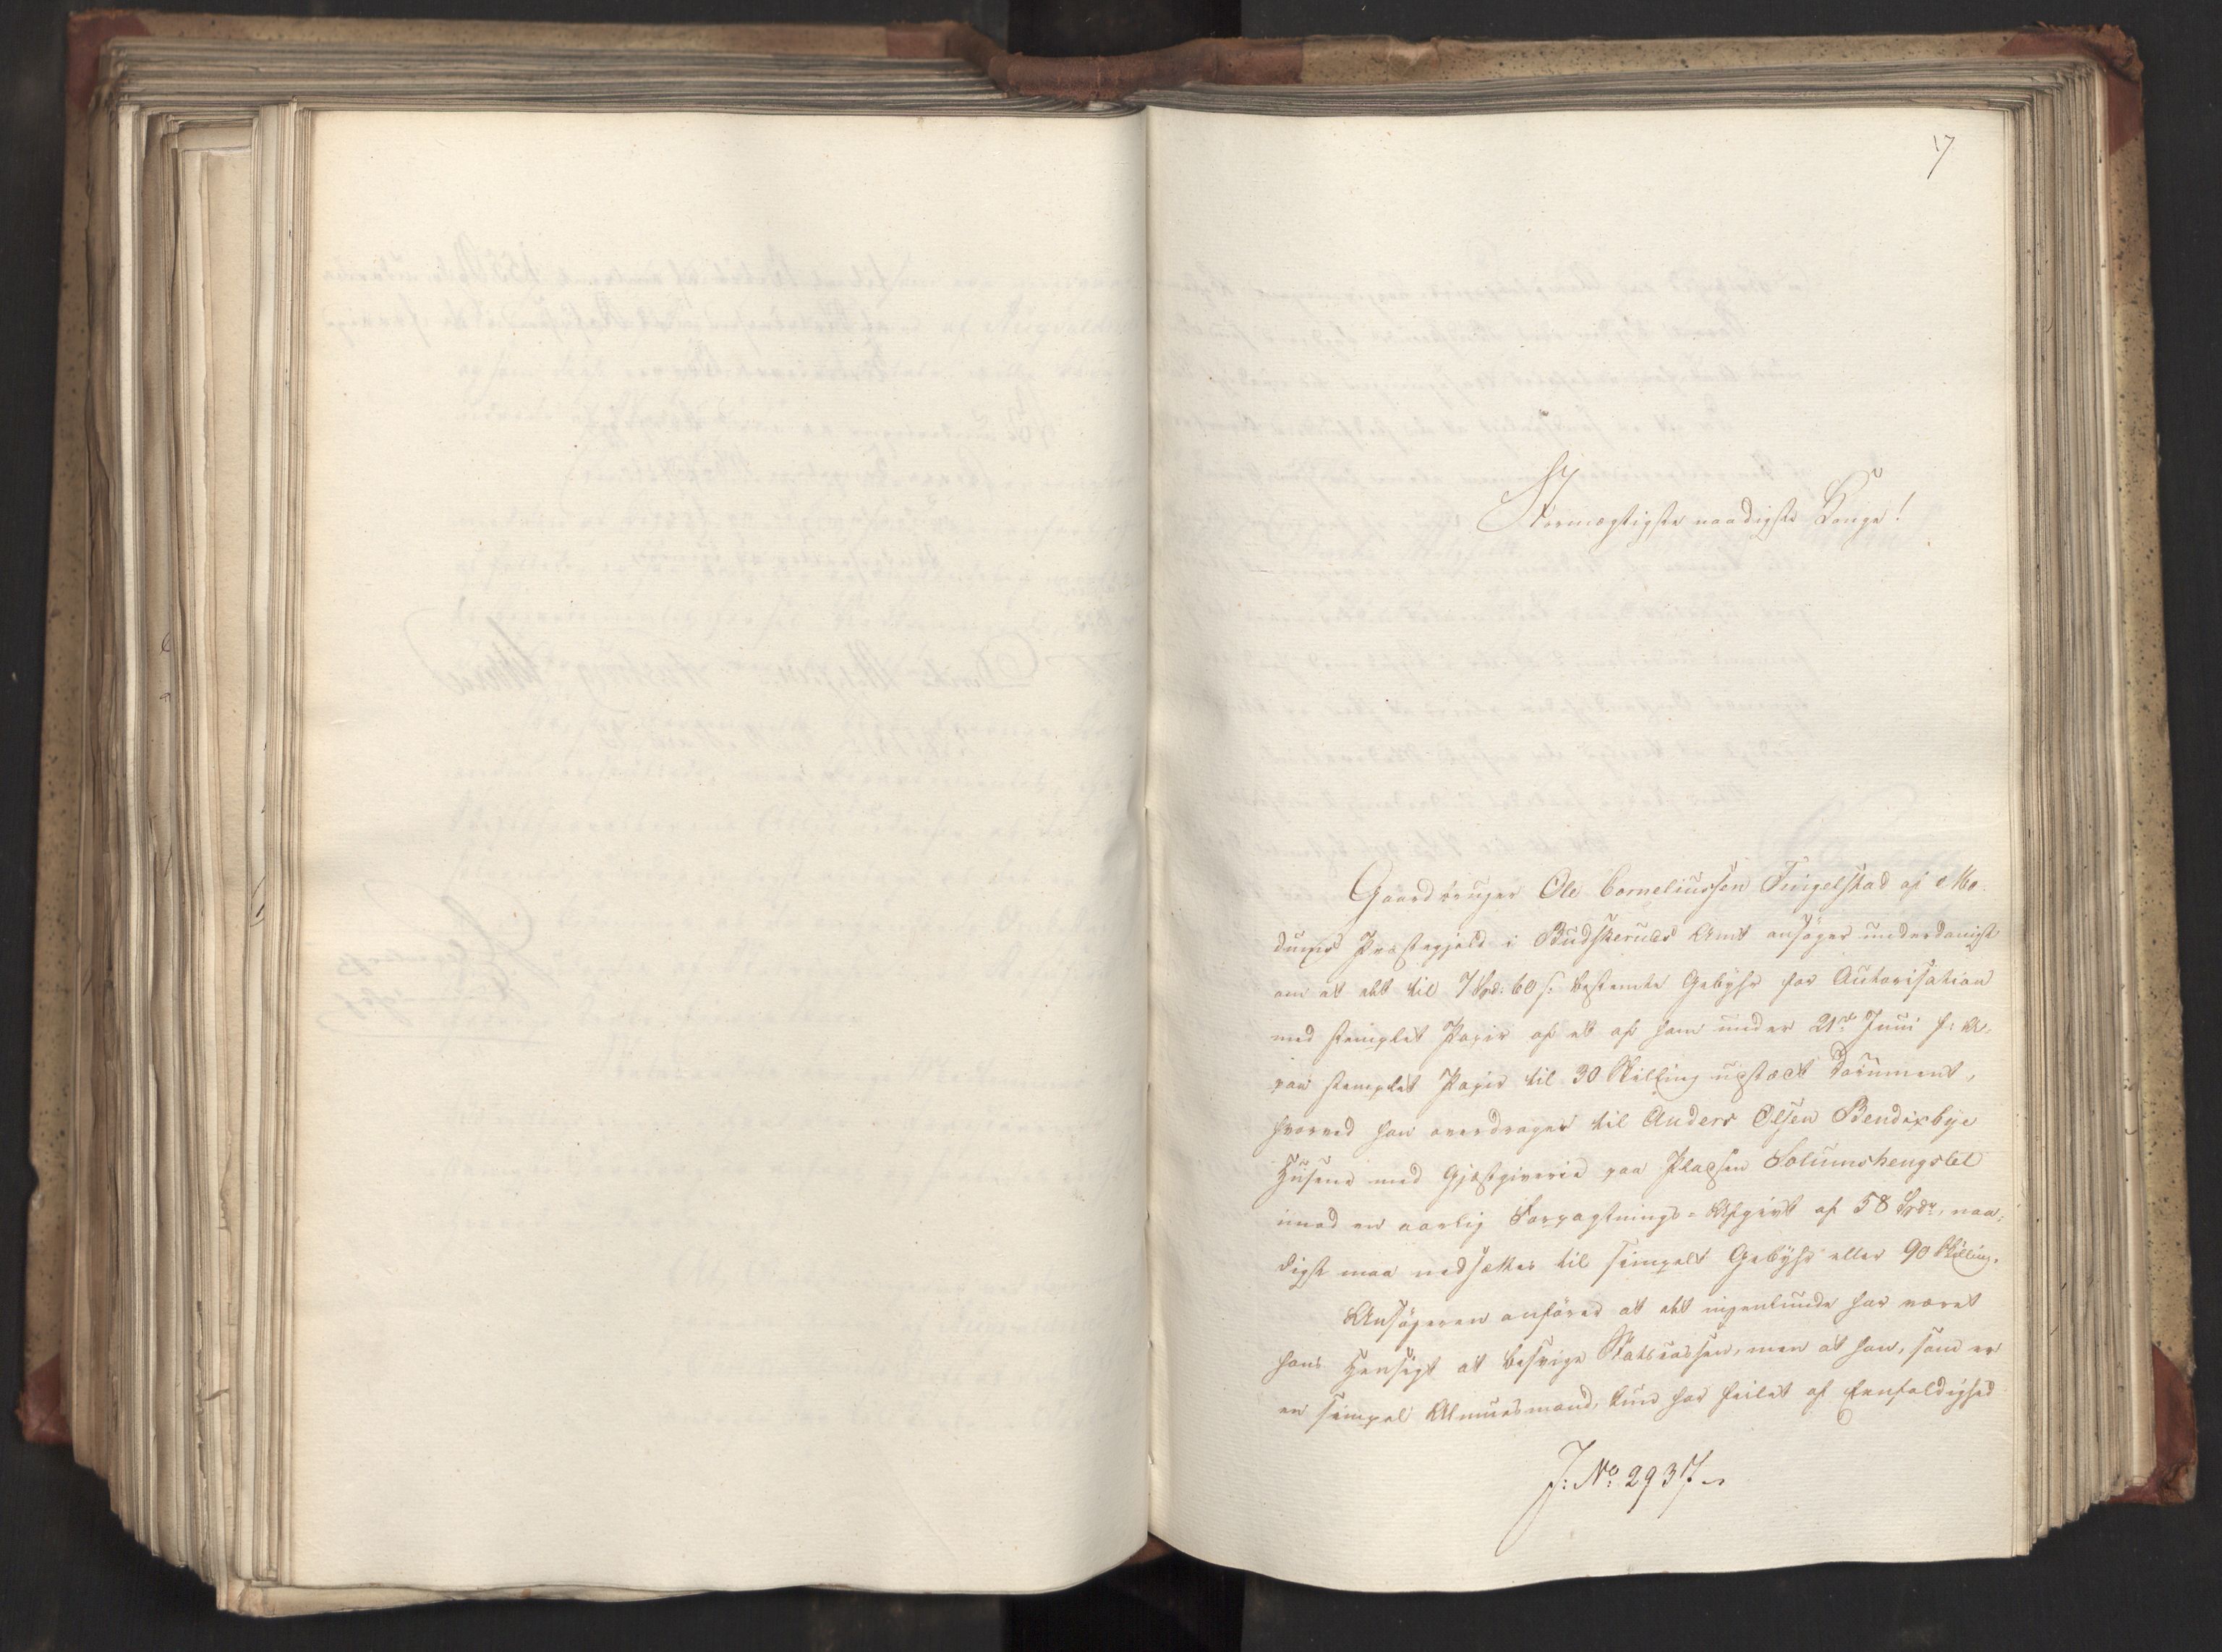 17
Stormægtigste naadigste Konge!
Gaardbruger Ole Corneliussen Tingelstad af Mo-
dums Præstegjeld i Budskeruds Amt ansøger underdanigst
om at det til 7 Spd: 60 s. bestemte Gebyhr for Autorisation
med stemplet Papir af et af ham under 21de Juni f: A.
paa stemplet Papir til 30 Skilling udstædt Document,
hvorved han overdrager til Anders Olsen Bendixbye
Husene med Gjæstgiverie paa Pladsen Solumshengslet
imod en aarlig Forpagtnings-Afgivt af 58 Spdr, naa-
digst maa nedsættes til simpelt Gebyhr eller 90 Skilling.
Ansøgeren anfører at det ingenlunde har været
hans Hensigt at besvige Statscassen, men at han, som er
en simpel Almuesmand, kun har feilet af Eenfoldighed
J: No 2937